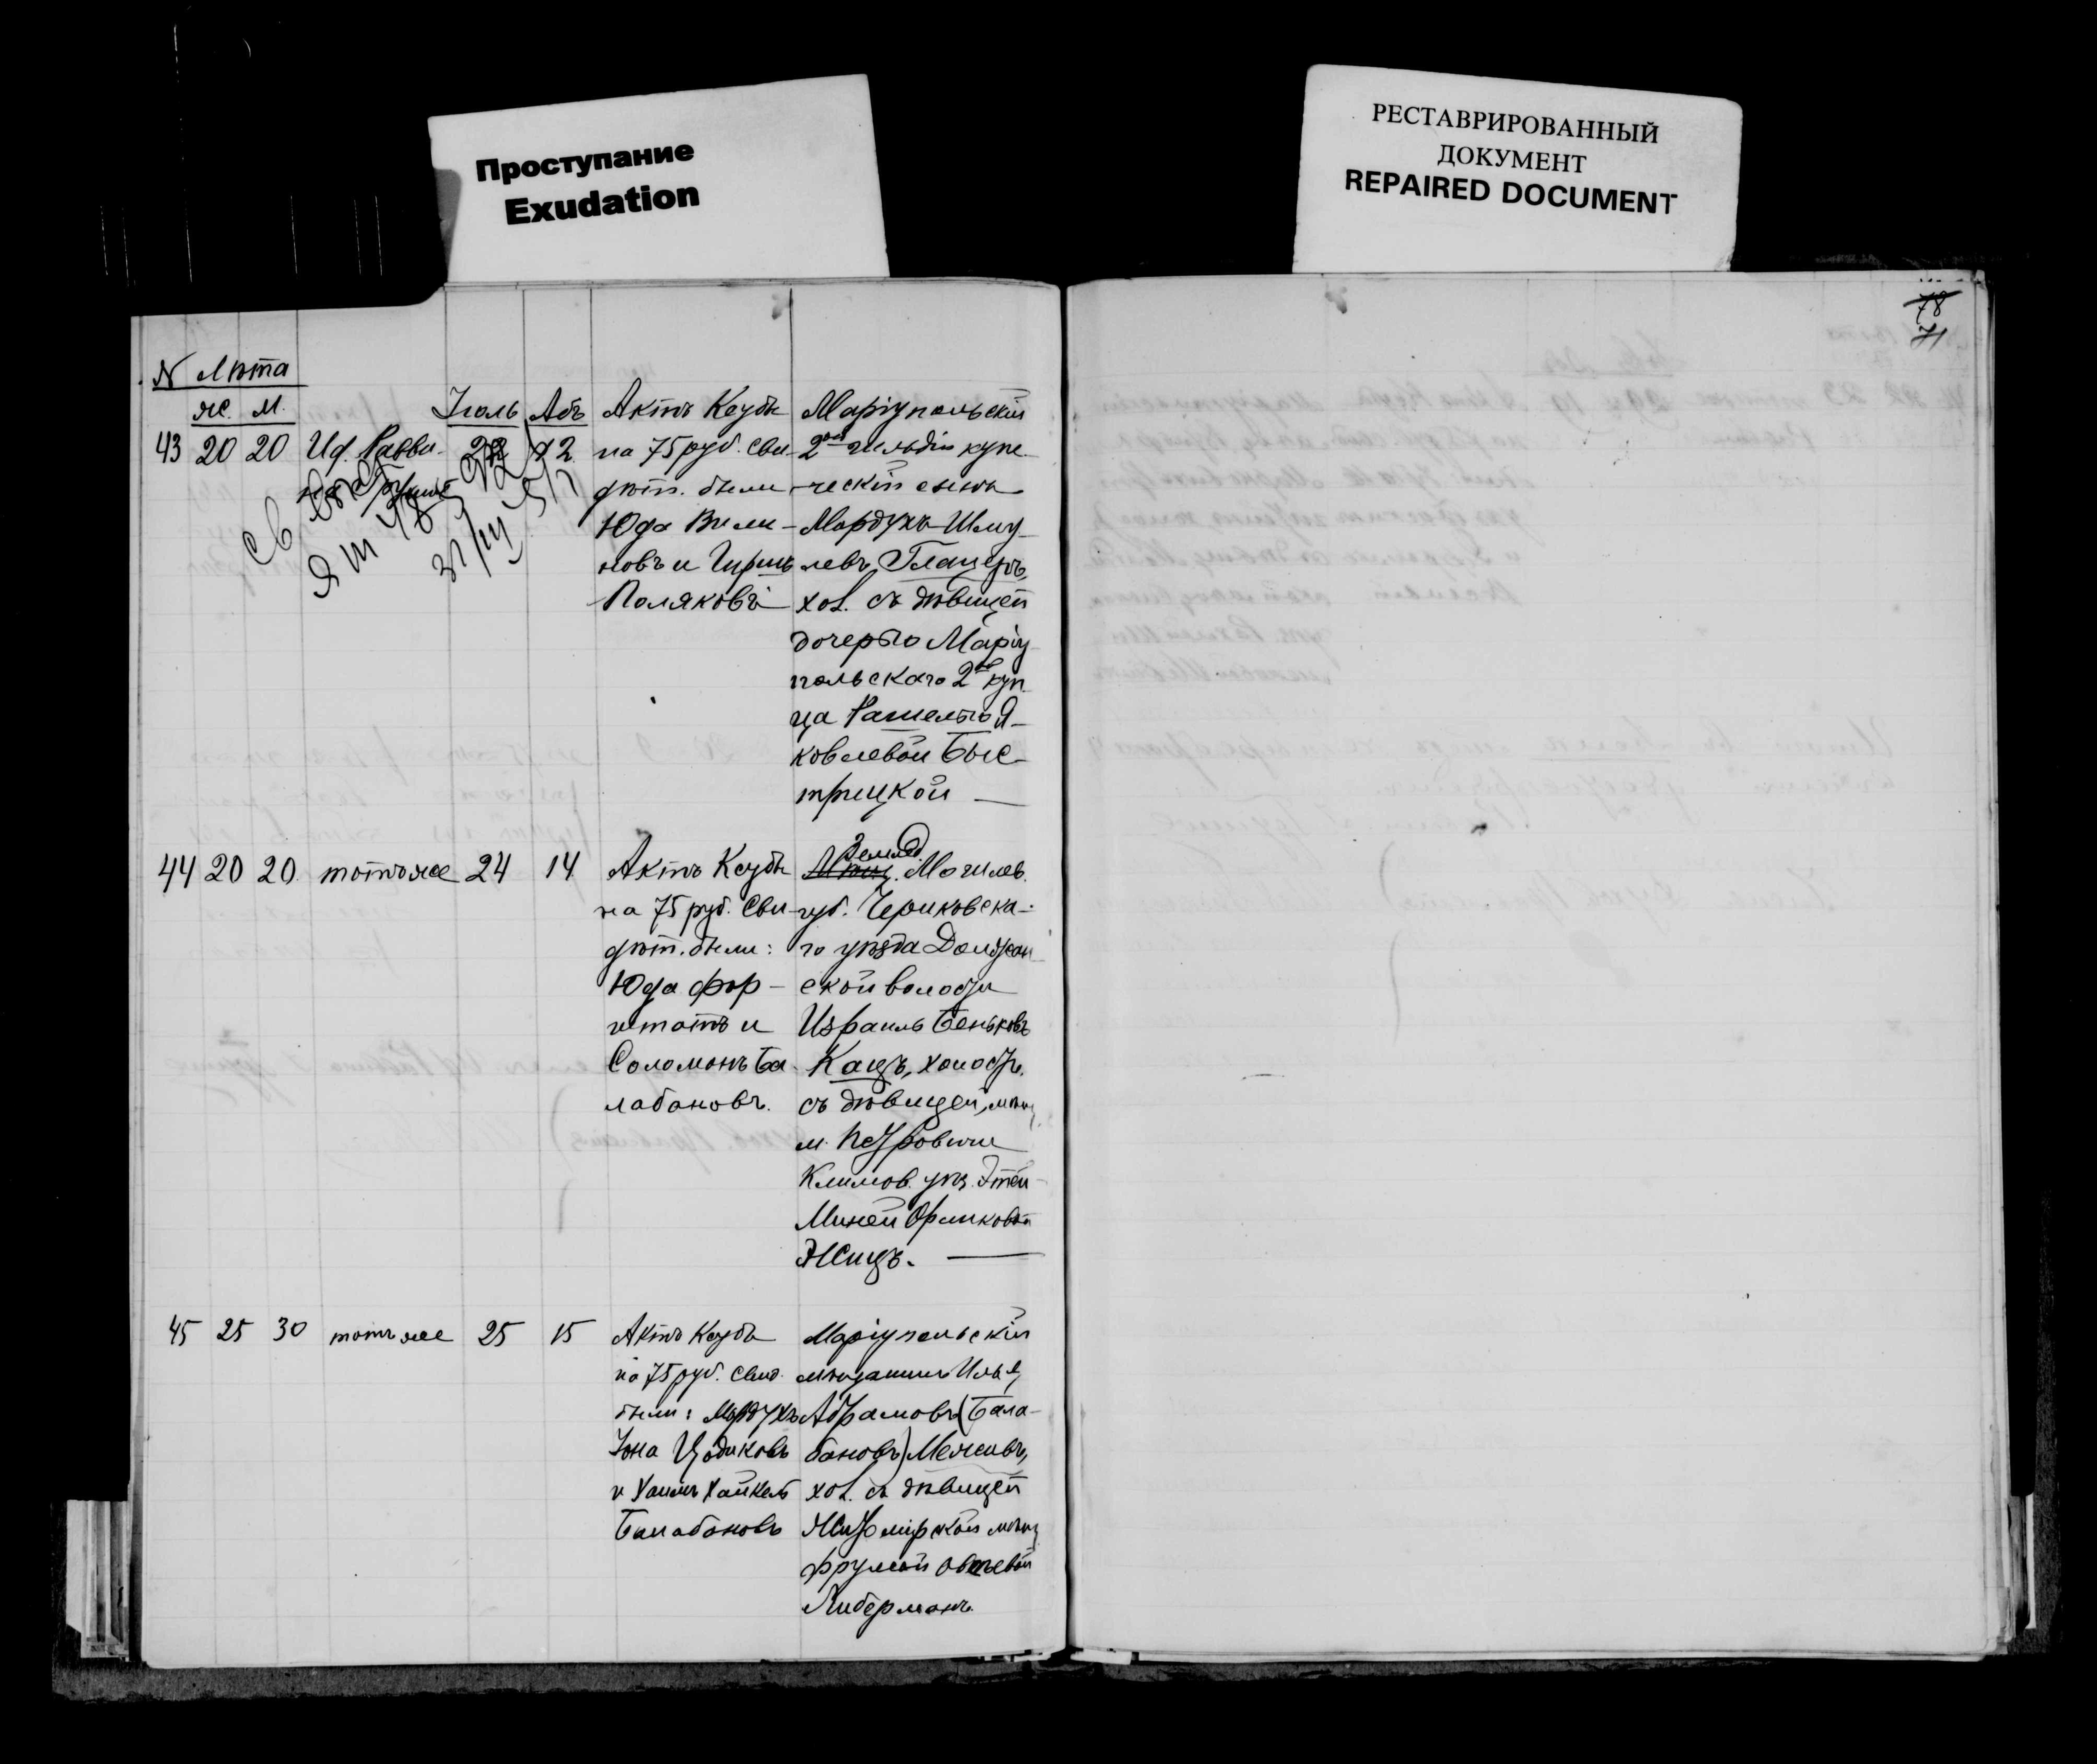 Проступание
Exudation
РЕСТАВРИРОВАННЫЙ
ДОКУМЕНТ
REPAIRED DOCUMENT
78
71
N Лѣта
ж. м. Іюль Абъ
43 20 20 Ис. Равви- 22 12
Актъ Ксубы
на 75 руб. Сви-
дѣт. были
Юда Вили-
новъ и Гиршъ
Поляковъ
Маріупольскій
2ой гильдіи купе-
ческій сынъ
Мордухъ Шму-
левъ Гланцъ,
хол. съ дѣвицей
дочерью Маріу-
польскаго 2ой куп-
ца Рашелью Я-
ковлевой Быс-
трицкой
44 20 20 тотъ же 24 14
Актъ Ксубы
на 75 руб. Сви-
дѣт. были:
Юда Фор-
штатъ и
Соломонъ Ба-
лабановъ.
Землед.
Мѣщ. Могилев.
губ. Чериковска-
го уѣзда Должан-
ской волости
Израиль Беньковъ
Кацъ, холост.
съ дѣвицей, мѣщ.
м. Петровичи
Климов. уѣз. Этей-
Миней Орликовой
Жицъ.
45 25 30 тотъ же 25 15
Актъ Ксубы
на 75 руб. Свид.
были: Мордухъ
Іона Цодиковъ
и Хаимъ Хайкель
Балабановъ
Маріупольскій
мѣщанинъ Илья
Абрамовъ (Бала-
бановъ) Меживъ,
хол. съ дѣвицей
Житомірской мѣщ.
Фрумой Овсѣевой
Либерманъ.